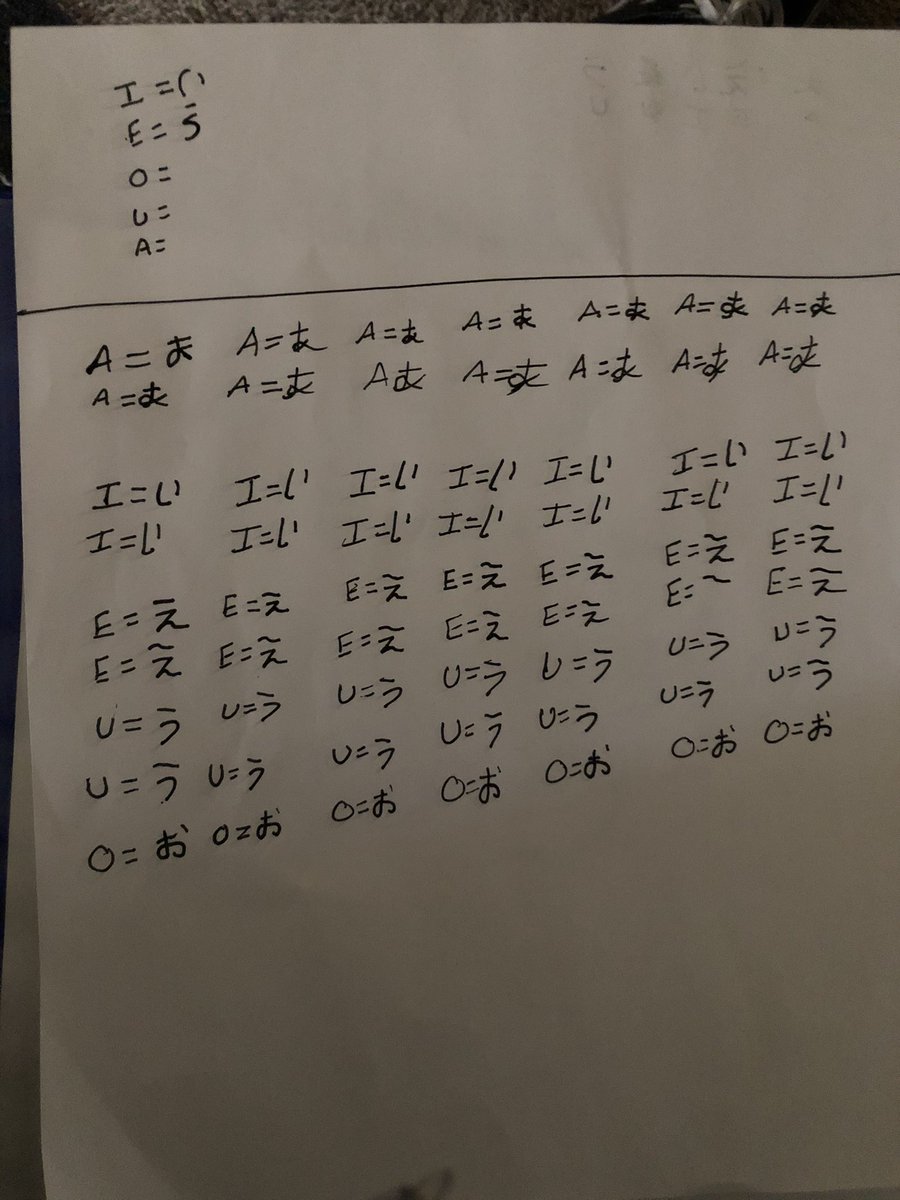 I = い
E = う
O =
U =
A =
A = あ A = あ A = あ A = あ A = あ A = あ A = あ
A = あ A = あ A あ A = あ A = あ A = あ A = あ
I = い I = い I = い I = い I = い I = い I = い
I = い I = い I = い I = い I = い I = い I = い
E = え E = え E = え E = え E = え E = え E = え
E = え E = え E = え E = え E = え E = ~ E = え
U = う U = う U = う U = う U = う U = う U = う
U = う U = う U = う U = う U = う U = う U = う
O = お O = お O = お O = お O = お O = お O = お